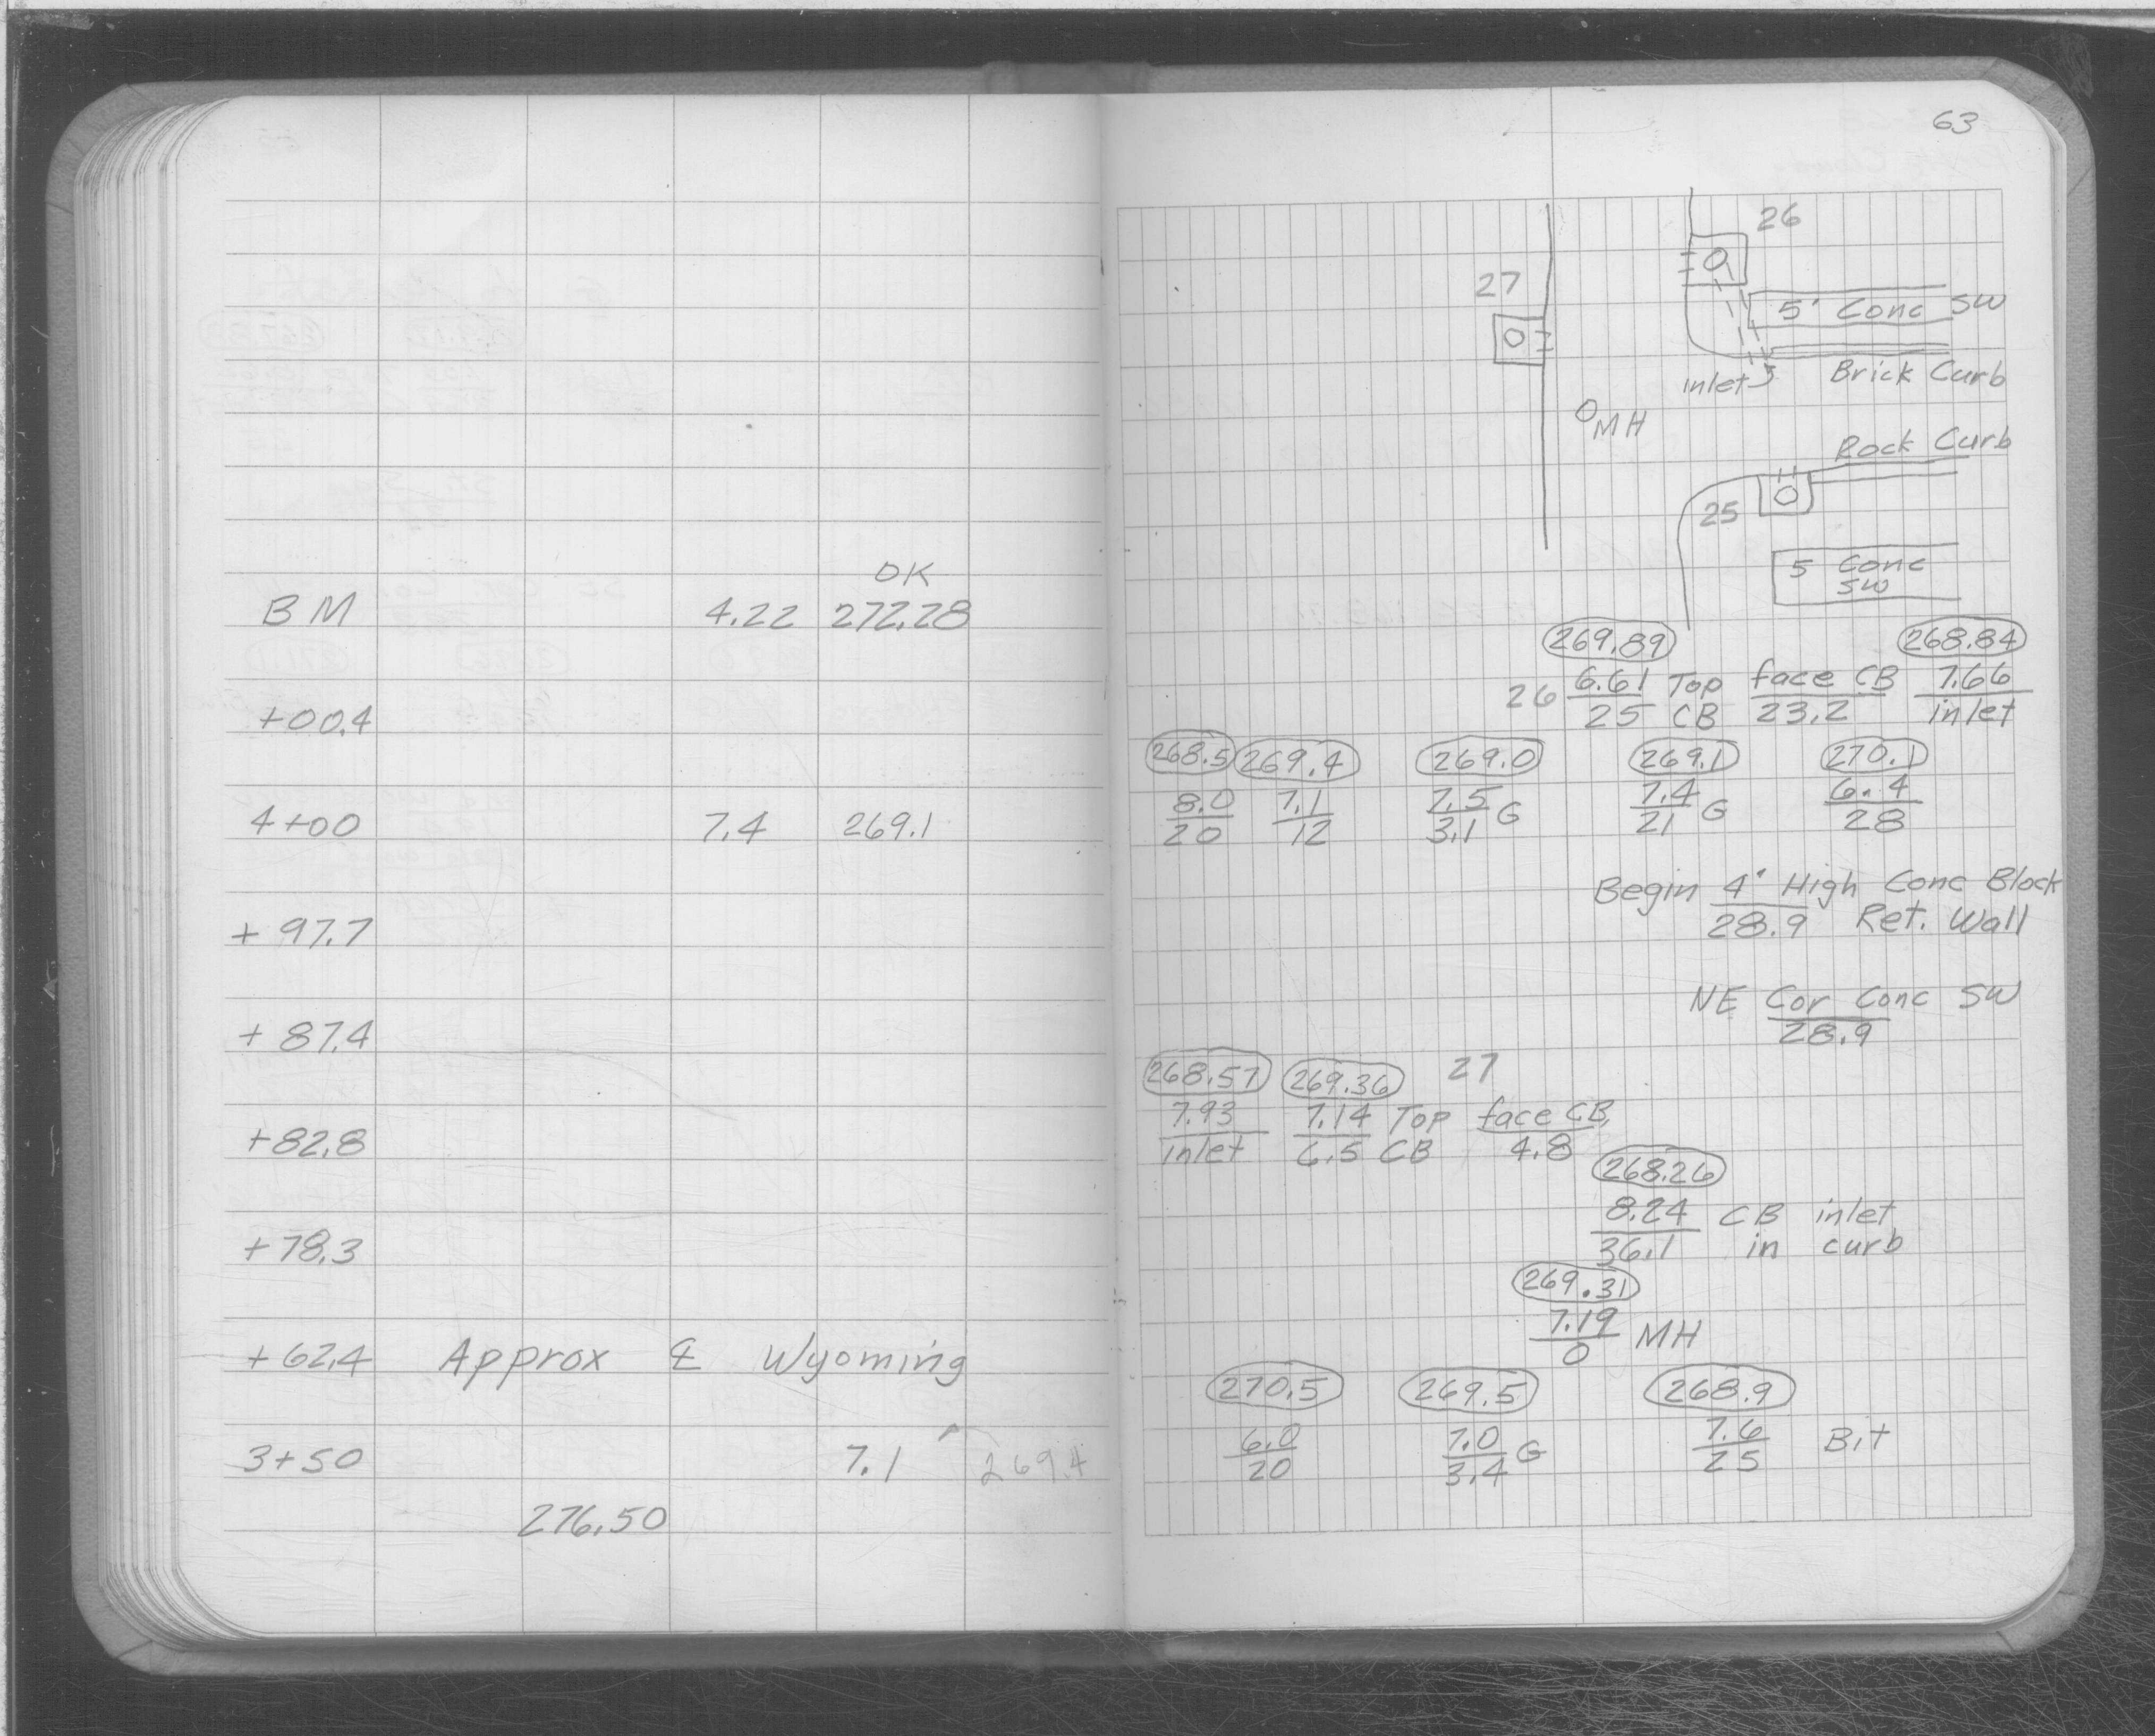 OK
BM 4.22 272.28
+00.4
4+00 7.4 269.1
+ 97.7
+ 87.4
+82.8
+78.3
+62.4 Approx ℄ Wyoming
3+50 7.1 269.4
276.50
63
26
27
5' Conc SW
inlet
Brick Curb
MH
Rock Curb
25
5 Conc
SW
269.89 268.84
26 6.61 Top face CB 7.66
25 CB 23.2 inlet
268.5 269.4 269.0 269.1 270.1
8.0 7.1 7.5 G 7.4 G 6.4
20 12 3.1 21 28
Begin 4' High Conc Block
28.9 Ret. Wall
NE Cor Conc SW
28.9
268.57 269.36 27
7.93 7.14 Top face CB
inlet 6.5 CB 4.8
268.26
8.24 CB inlet
36.1 in curb
269.31
7.19 MH
0
270.5 269.5 268.9
6.0 7.0 G 7.6 Bit
20 3.4 25